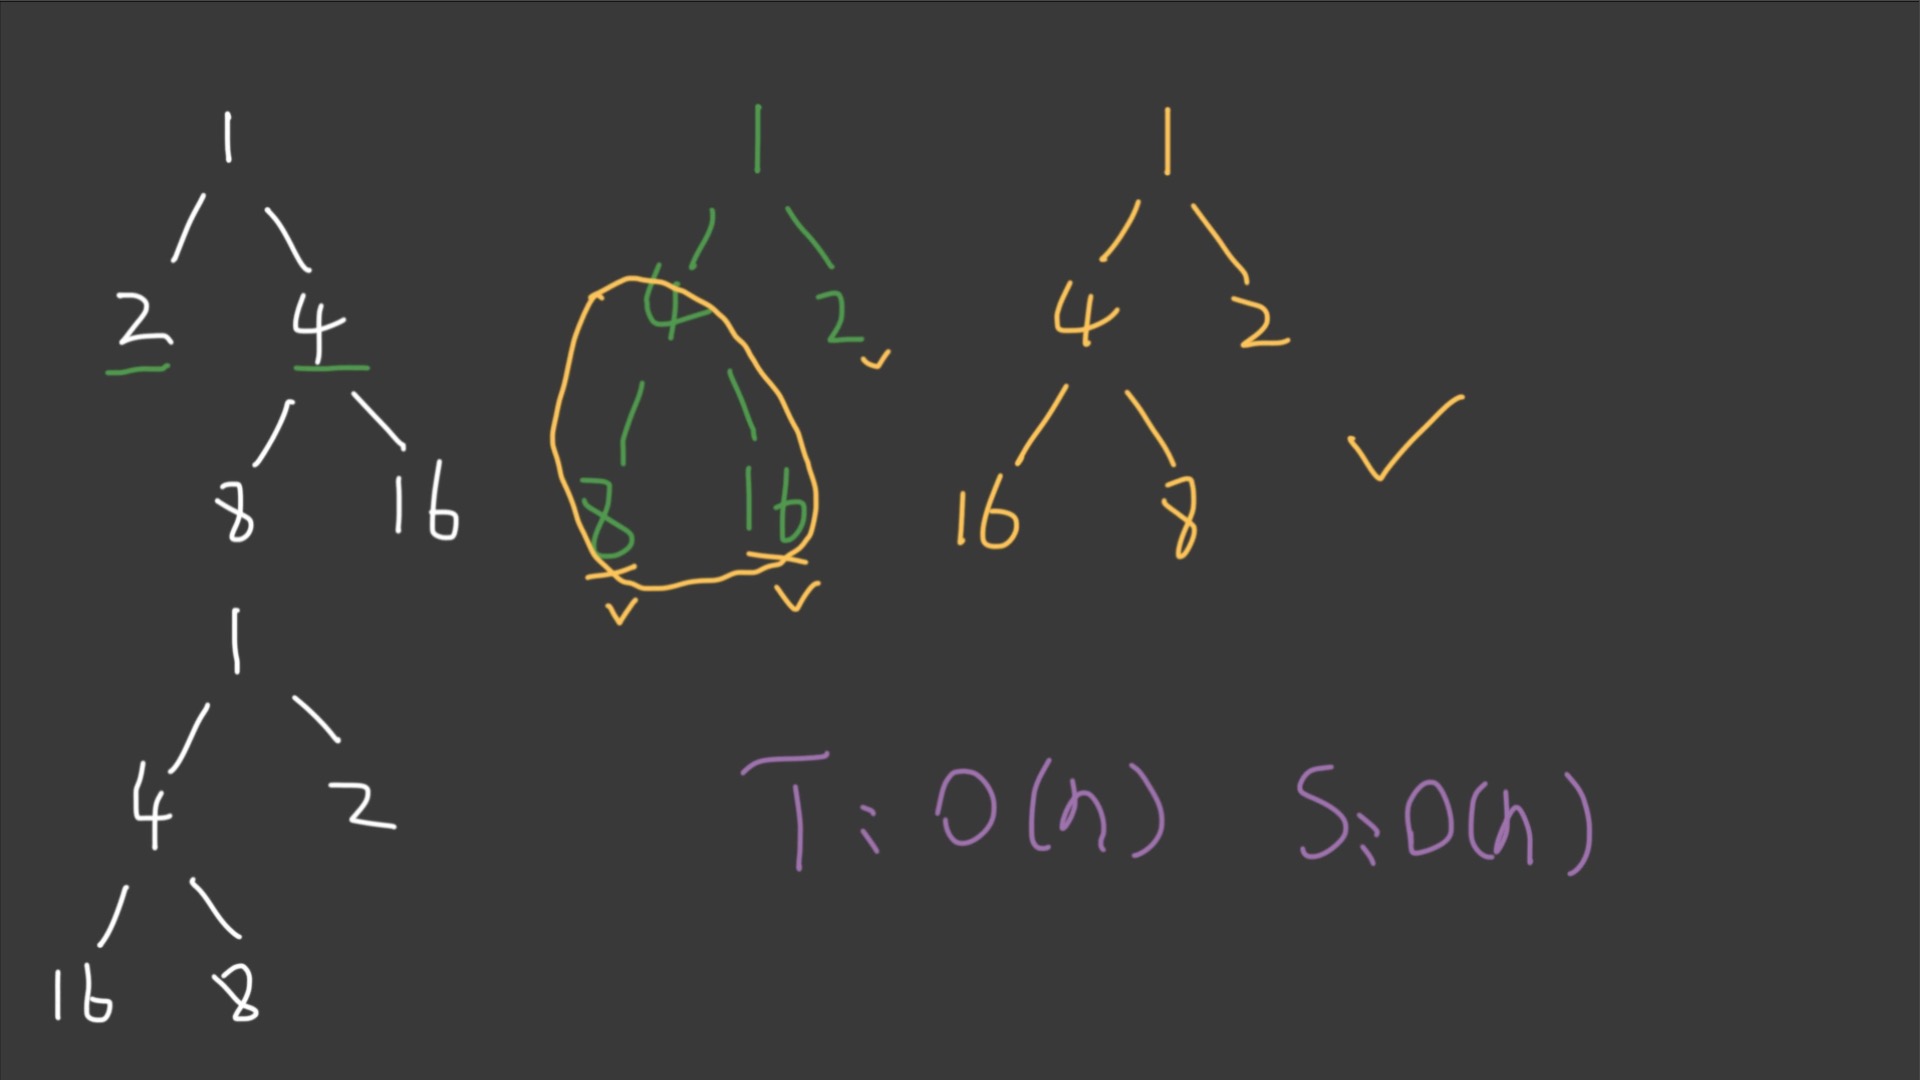 1
2 4
8 16
1
4 2
16 8
1
4 2
8 16
1
4 2
16 8
T: O(n) S: O(n)